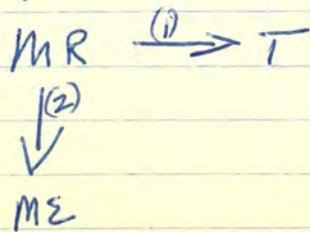 MR (1) → T
(2)
ME